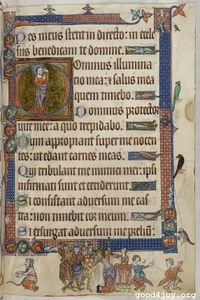 Pes meus stetit in directo: in eccle
sus benedicam te domine.
Dominus illumina
cio mea: & salus mea
quem timebo.
Dominus protector
uite mee: a quo trepidabo.
Dum appropiant super me nocen
tes: ut edant carnes meas.
Qui tribulant me inimici mei: ipsi
infirmati sunt et ceciderunt.
Si consistant aduersum me cas
tra: non timebit cor meum.
Si exurgat aduersum me preliu:
good4joy.org